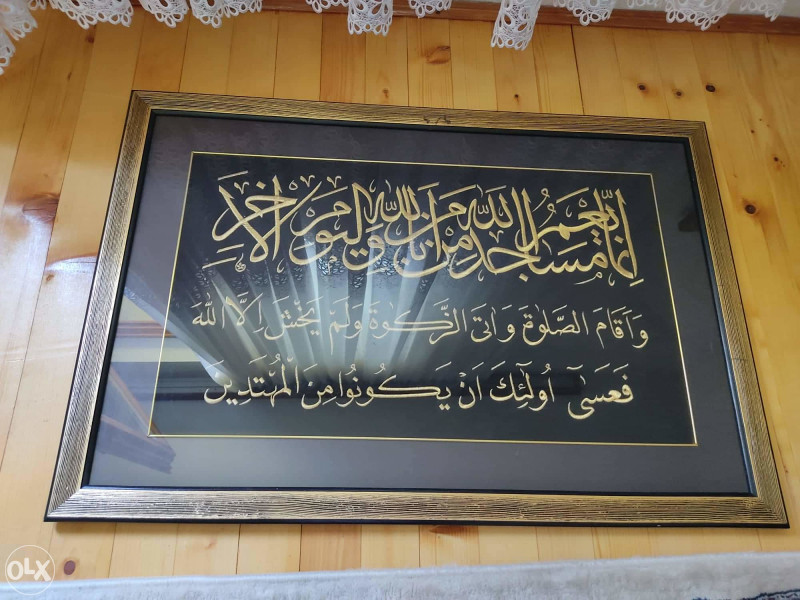 إِنَّمَا يَعْمُرُ مَسَاجِدَ اللهِ مَنْ اٰمَنَ بِاللهِ وَالْيَوْمِ الْاٰخِرِ
وَاَقَامَ الصَّلٰوةَ وَاٰتَى الزَّكٰوةَ وَلَمْ يَخْشَ اِلَّا اللهَ
فَعَسٰٓى اُولٰٓئِكَ اَنْ يَكُونُوا مِنَ الْمُهْتَدِينَ
OLX